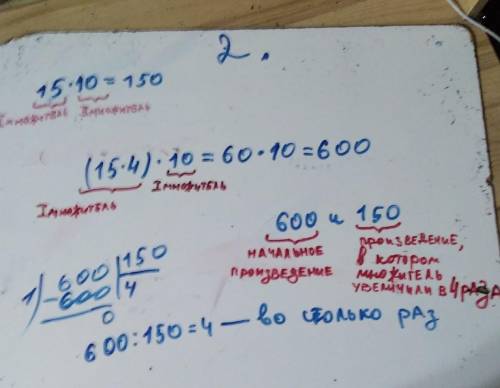 2.
15·10=150
I множитель II множитель
(15·4)·10=60·10=600
I множитель II множитель
600 и 150
начальное произведение
произведение, в котором множитель увеличили в 4 раза
1) 600 | 150
-600 | 4
0
600:150=4 — во столько раз